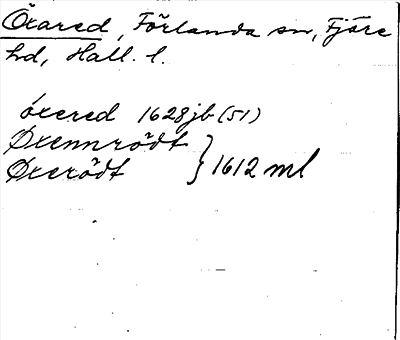 Öxared, Förlanda sn, Fjäre
hd, Hall. l.
öxered 1628 jb (51)
Øxennrödt
Øxerödt } 1612 ml